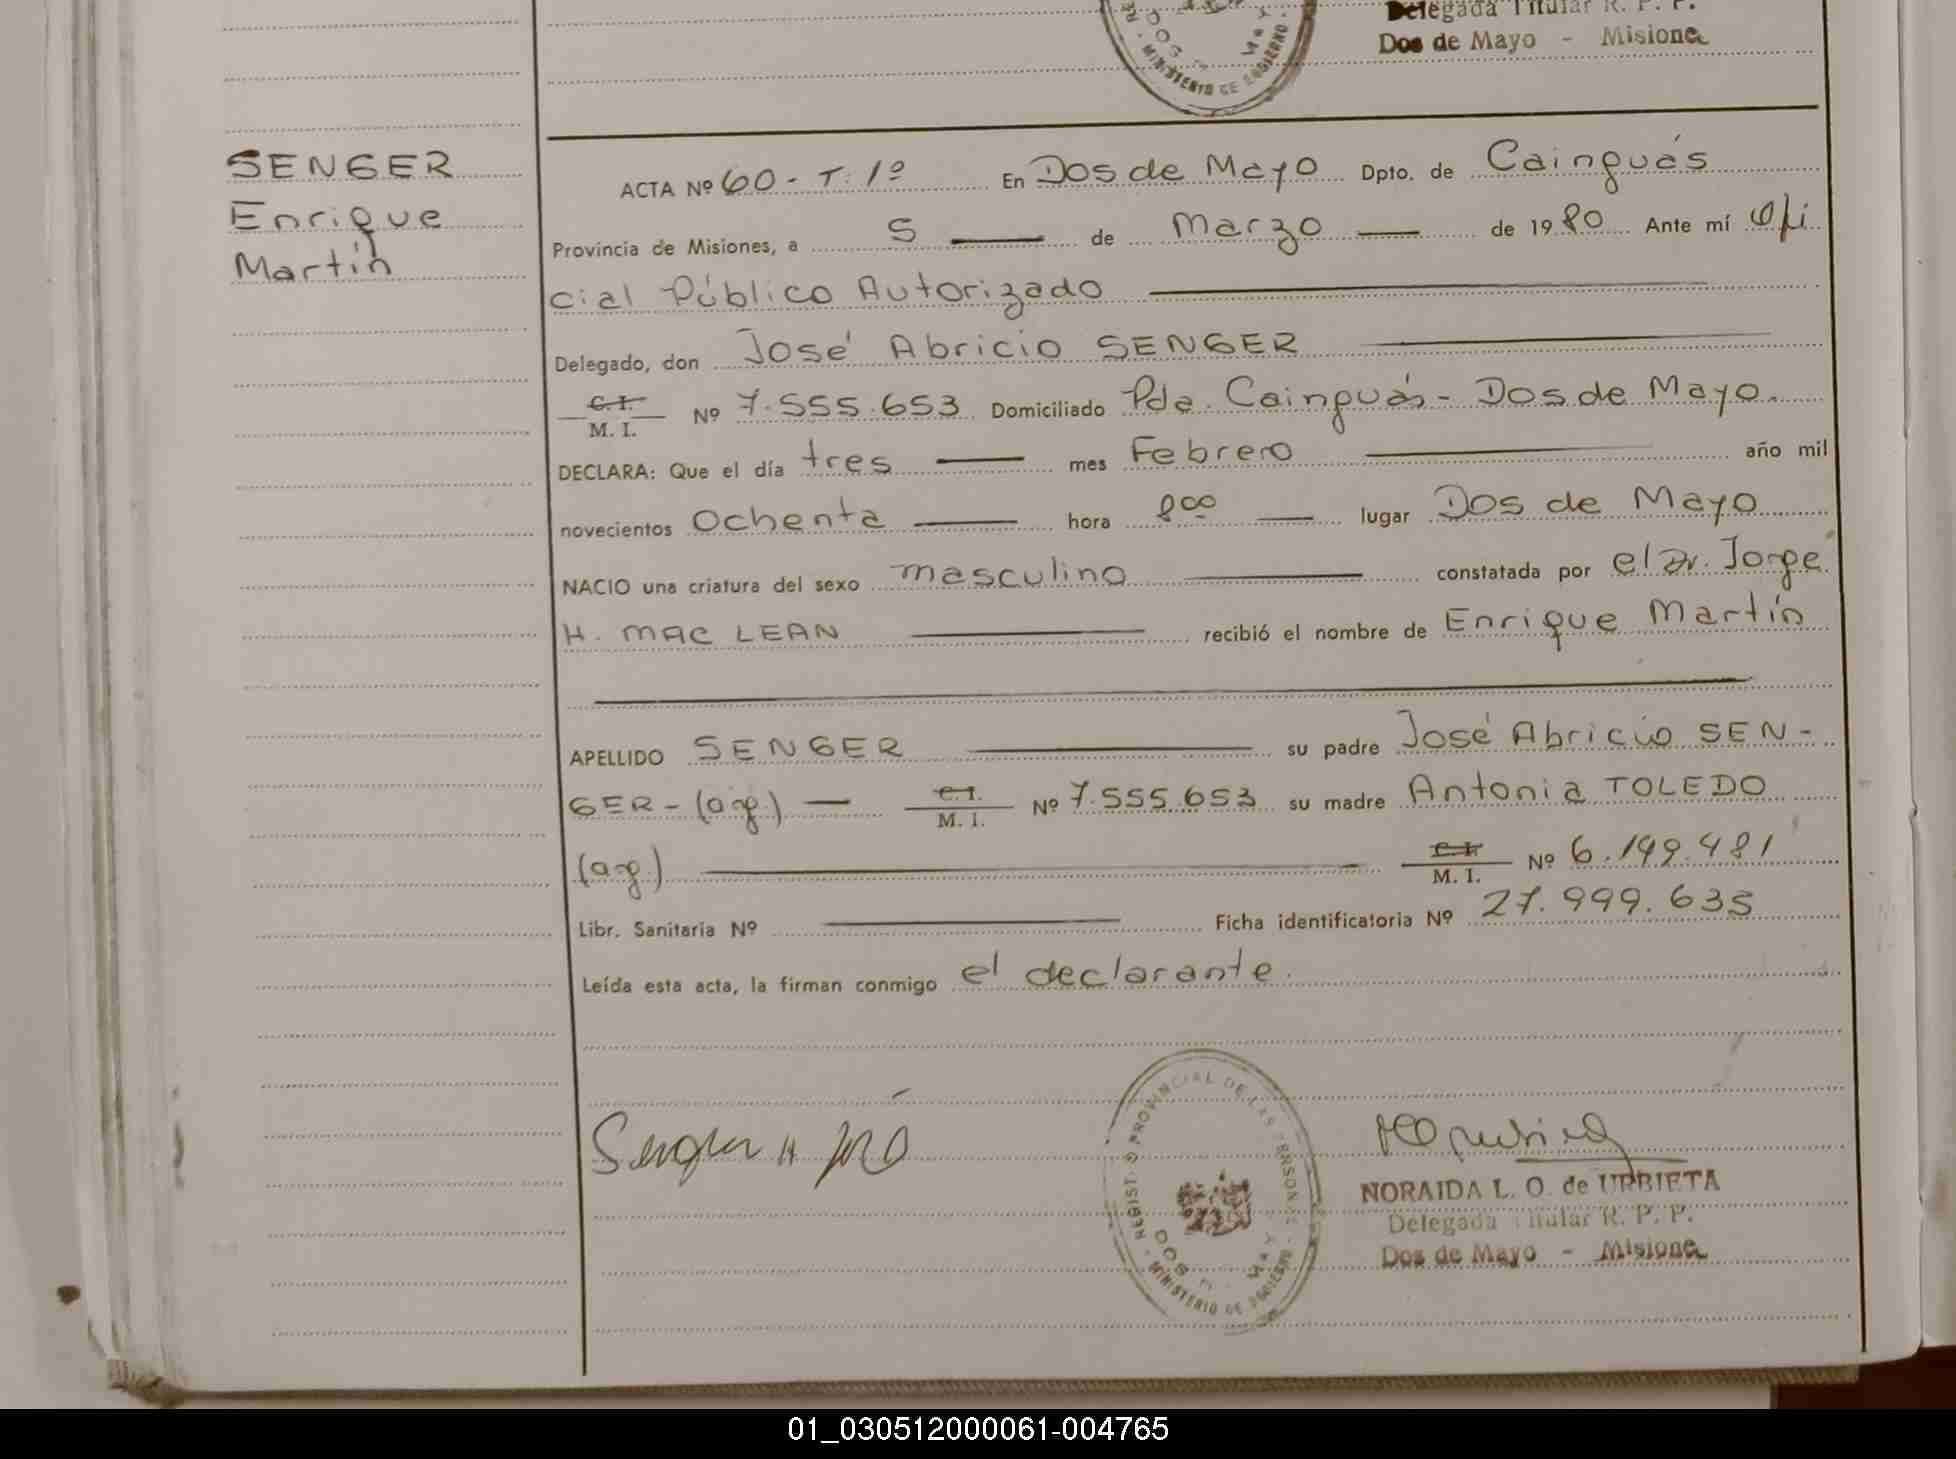 Delegada Titular R. P. P.
Dos de Mayo - Misiones
MINISTERIO DE GOBIERNO
SENGER
Enrique
Martín
ACTA Nº 60 - T: 1º En Dos de Mayo Dpto. de Cainguás
Provincia de Misiones, a 5 de Marzo de 1980 Ante mí Ofi
cial Público Autorizado
Delegado, don José Abricio SENGER
C. I.
M. I. Nº 7.555.653 Domiciliado Pda. Cainguás - Dos de Mayo.
DECLARA: Que el día tres mes Febrero año mil
novecientos Ochenta hora 8 00 lugar Dos de Mayo
NACIO una criatura del sexo masculino constatada por el Dr. Jorge
H. MAC LEAN recibió el nombre de Enrique Martín
APELLIDO SENGER su padre José Abricio SEN-
GER - (arg.) C. I. M. I. Nº 7.555.653 su madre Antonia TOLEDO
(arg.) C. I. M. I. Nº 6.199.481
Libr. Sanitaria Nº Ficha identificatoria Nº 27.999.635
Leída esta acta, la firman conmigo el declarante.
Senger H José
REGISTRO PROVINCIAL DE LAS PERSONAS
MINISTERIO DE GOBIERNO
DOS DE MAYO
NORAIDA L. O. de URBIETA
Delegada Titular R. P. P.
Dos de Mayo - Misiones
01_030512000061-004765